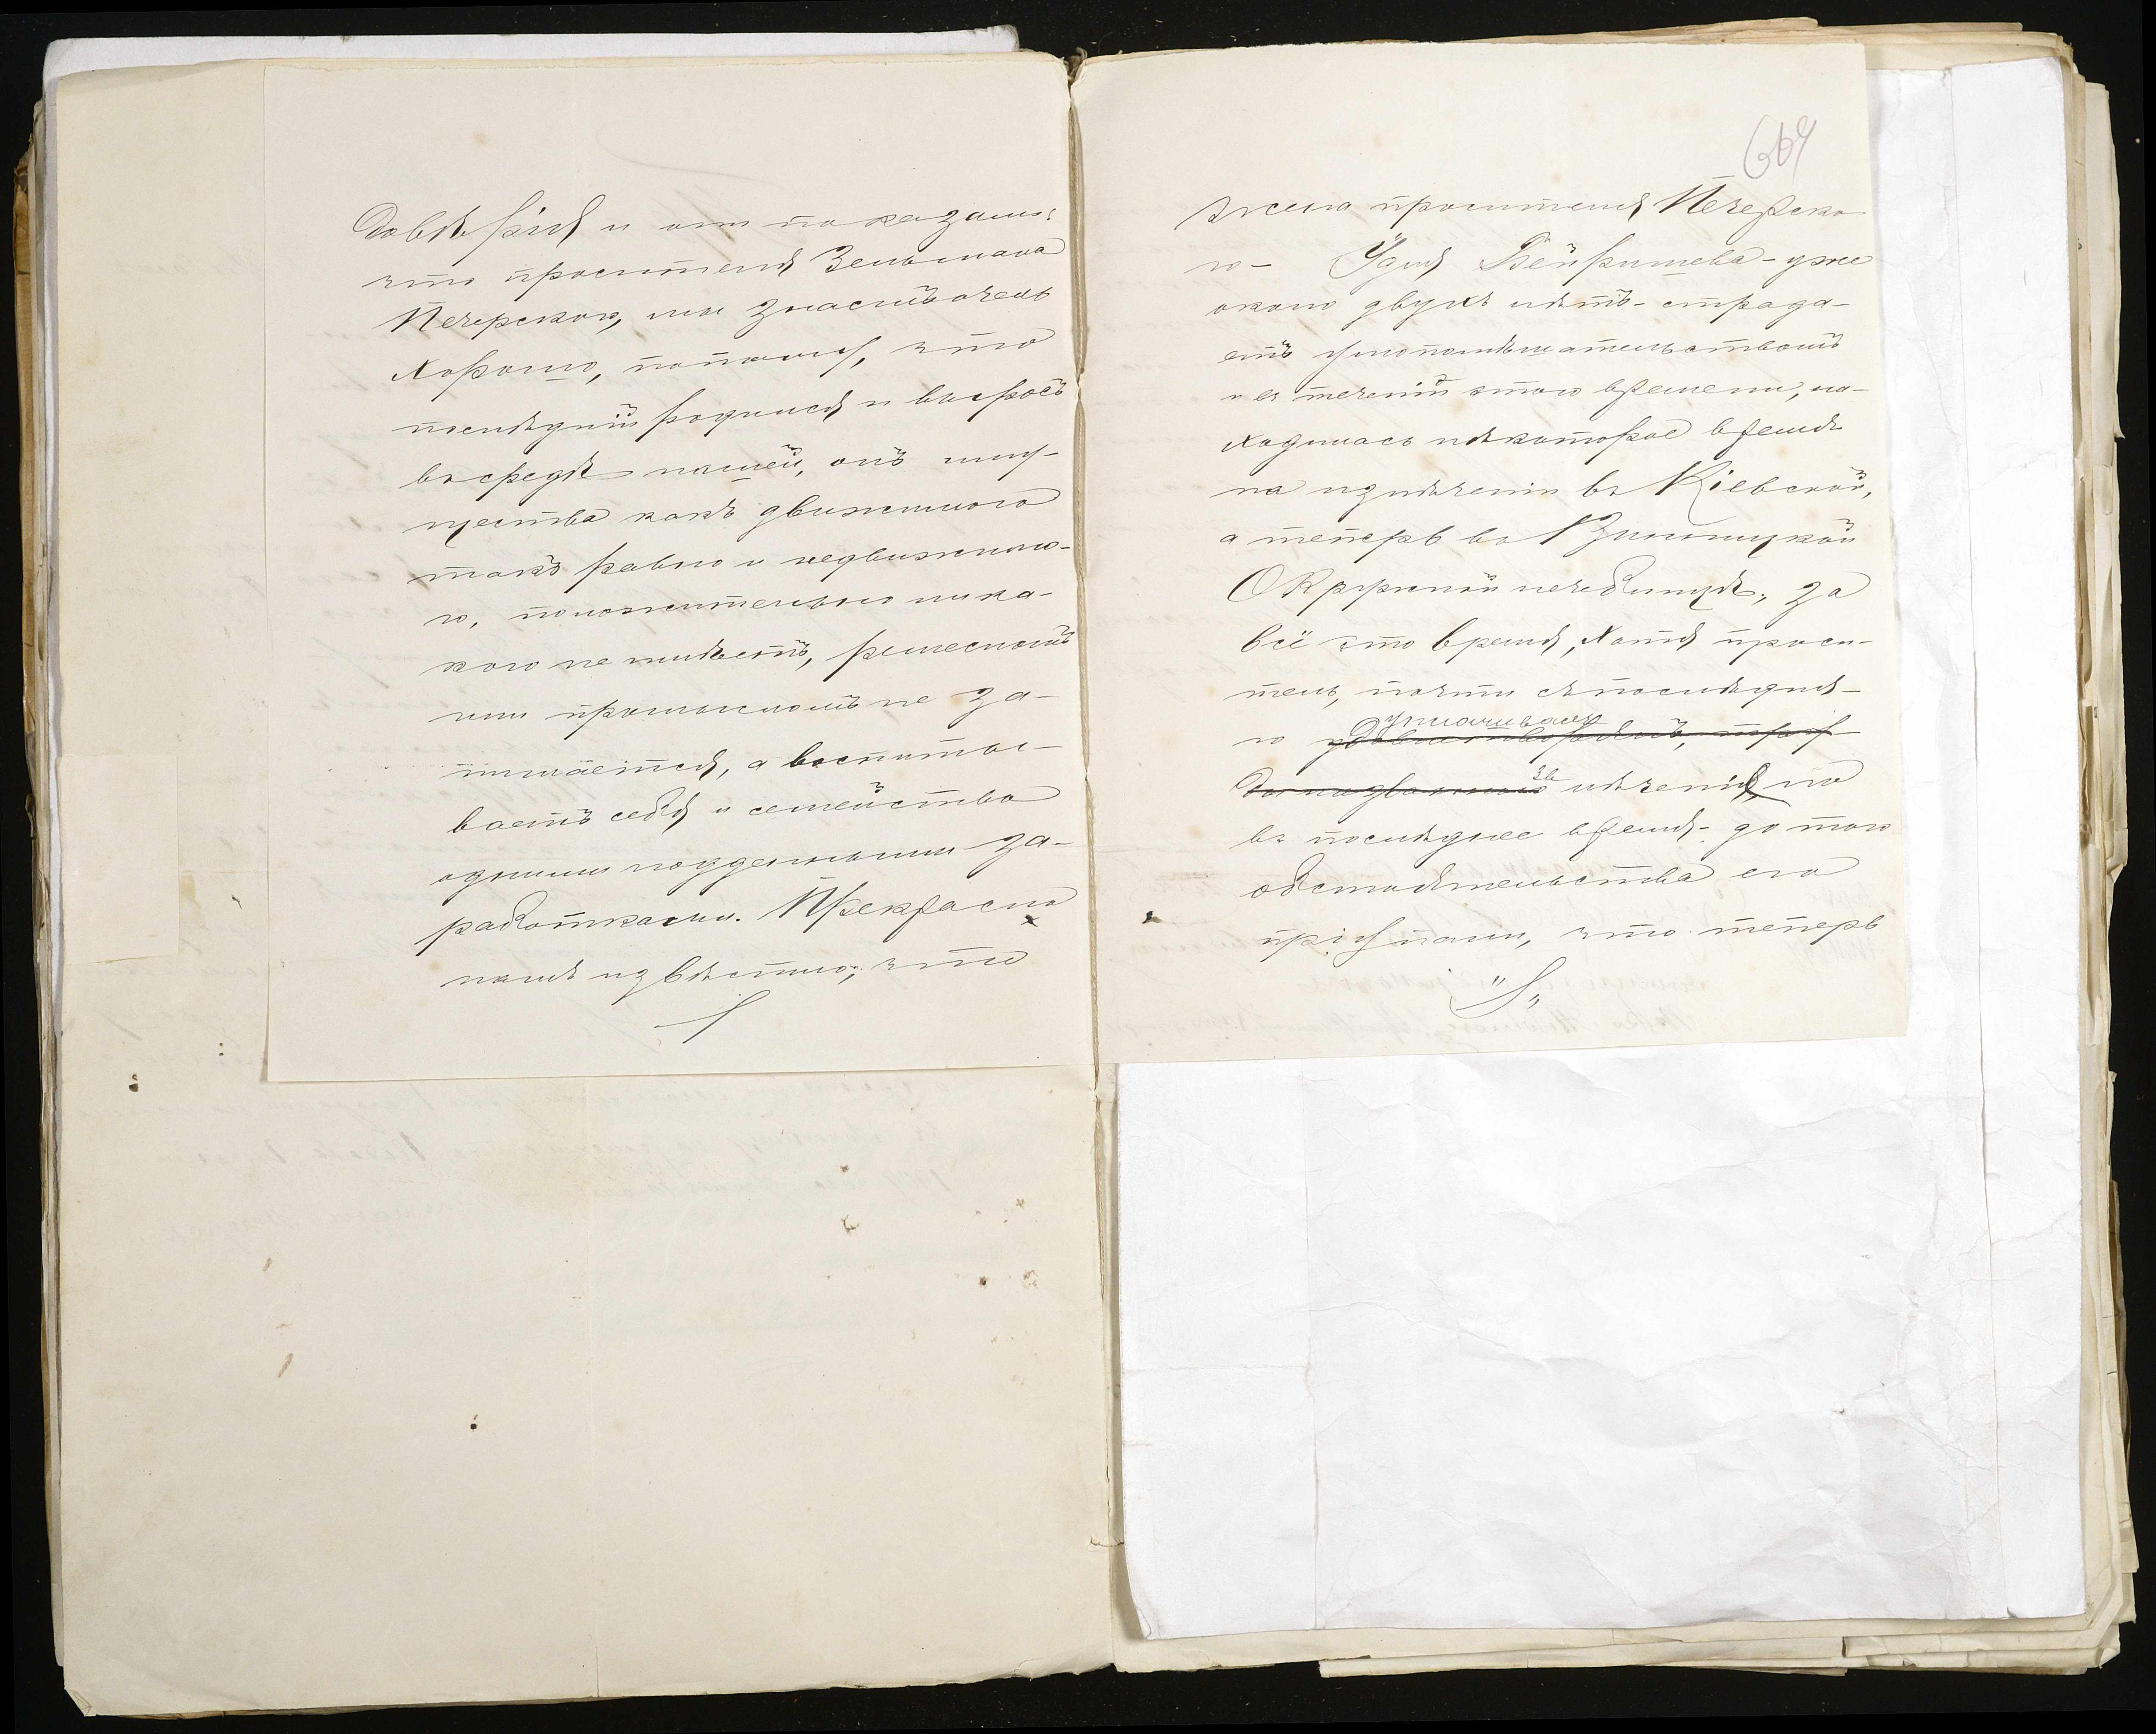 довѣрія и они показали:
что просителя Зельмана
Печерскаго, мы знаемъ очень
хорошо, потому, что
послѣдній родился и выросъ
въ средѣ нашей, онъ иму-
щества какъ движимого
такъ равно и недвижимо-
го, положительно ника-
кого не имѣетъ, ремесломъ
или промысломъ не за-
нимается, а воспиты-
ваетъ себя и семейство
одними поддельными за-
работками. Прекрасно
намъ извѣстно, что
664
жена просителя Печерска
го - Удля Вейришева - уже
около двухъ лѣтъ - страда-
етъ умопомѣшательствомъ
и въ теченіи этого времени, на-
ходилась нѣкоторое время
на излѣченіи въ Кіевской,
а теперь въ Винницкой
Окружной лечебницѣ, за
всё это время, хотя проси-
тель, почти съ послѣдня-
уплачивалъ
го удовлетворялъ,
за лѣченія, но
въ послѣднее время - до того
обстоятельства его
упали, что теперь